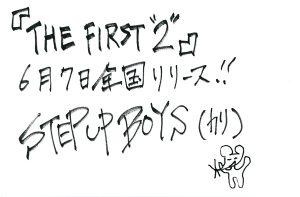 『THE FIRST "2"』
6月7日全国リリース!!
STEP UP BOYS (カリ)